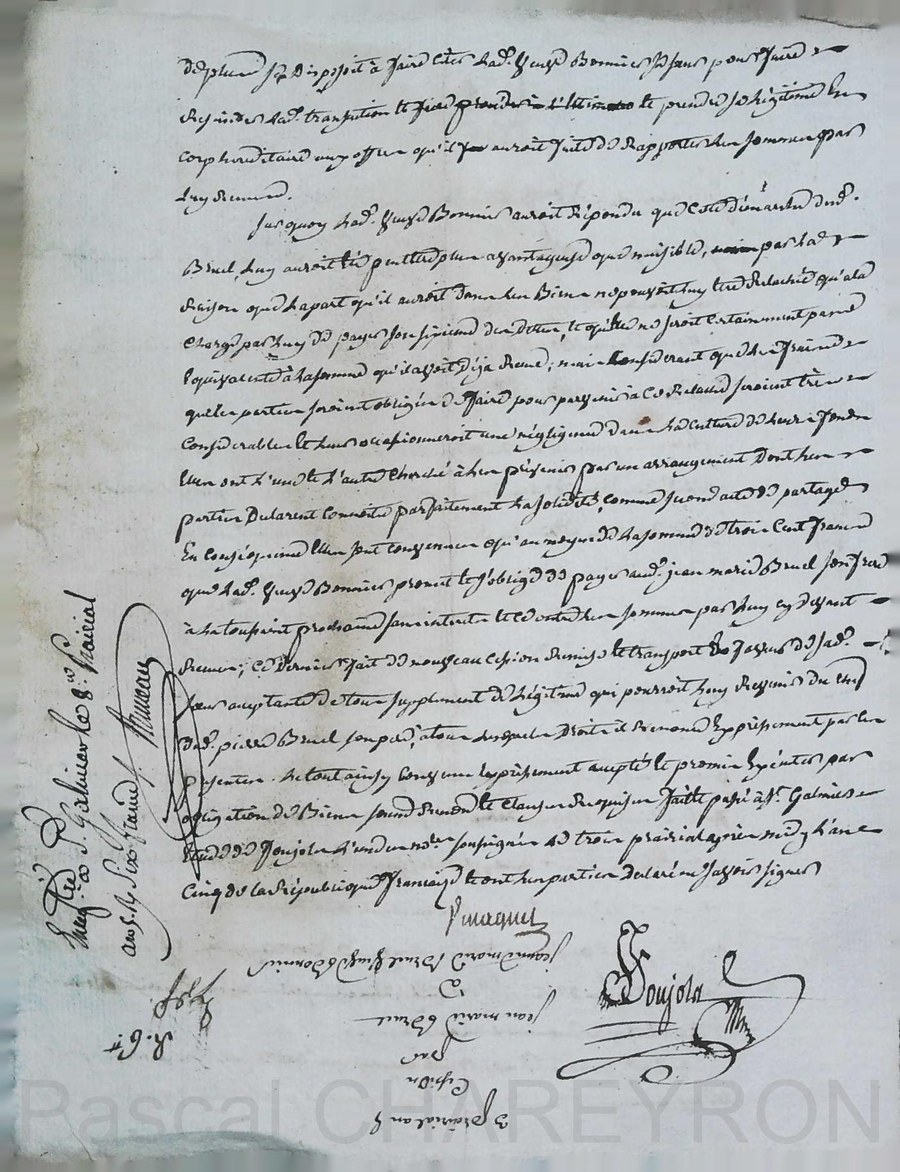 de plus se disposoit à faire cités lad. veuve Bonnier sa sœur pour faire
lad. transaction le prendre sa légitime en
corps hereditaire aux offres qu'il auroit faite de rapporter les sommes par
luy reçues.
sur quoy lad. veuve Bonnier auroit répondu que cette démarche dud.
Bruel, luy auroit été plus avantageuse que nuisible, par la
raison que la part qu'il auroit dans les Biens ne pouvoit luy être relachée qu'a la
charge par luy de payer son des dettes, et qu'elle ne seroit certainement pas
équivalente à la somme qu'il avoit déja reçue; mais considerant que les fraix
que les parties seroint obligées de faire pour parvenir à ce seroient très
considerables et leurs occasionneroit une négligence dans la culture de leurs fonds
elles ont l'une et l'autre cherché à les prévenir par un arrangement dont les
parties declarent connoitre parfaitement la solidité, comme second acte de partage
En conséquence elles sont convenues qu'au moyen de la somme de trois cent francs
que lad. veuve Bonnier promet et s'oblige de payer aud. jean marie Bruel son frere
à la toussaint prochaine sans interets et ce outre les sommes par luy cy devant
reçues; ce dernier fait de nouveau cession remise et transport en faveur de sad.
sœur acceptante de tous supplement de légitime qui pourroit luy revenir du chef
dud. pierre Bruel son pere, à tous lesquels droits il renonce expressement par les
presentes. Le tout ainsy convenu expressement accepté et promis exécuter par
obligation de Biens soumd renond et clauses requises fait et passé à St. Galmier
etude de Poujola l'un des nores soussignés le trois prairial après midy l'an
cinq de la République française et ont les parties declaré ne savoir signer
Poujola
Enregtré à St. Galmier le 8 prairial
an 5. Six francs
R. 6 tt
jeanne marie Bruel veuve Bonnier
à
jean marie Bruel
par
Cession
3 prairial an 5
Pascal CHAREYRON